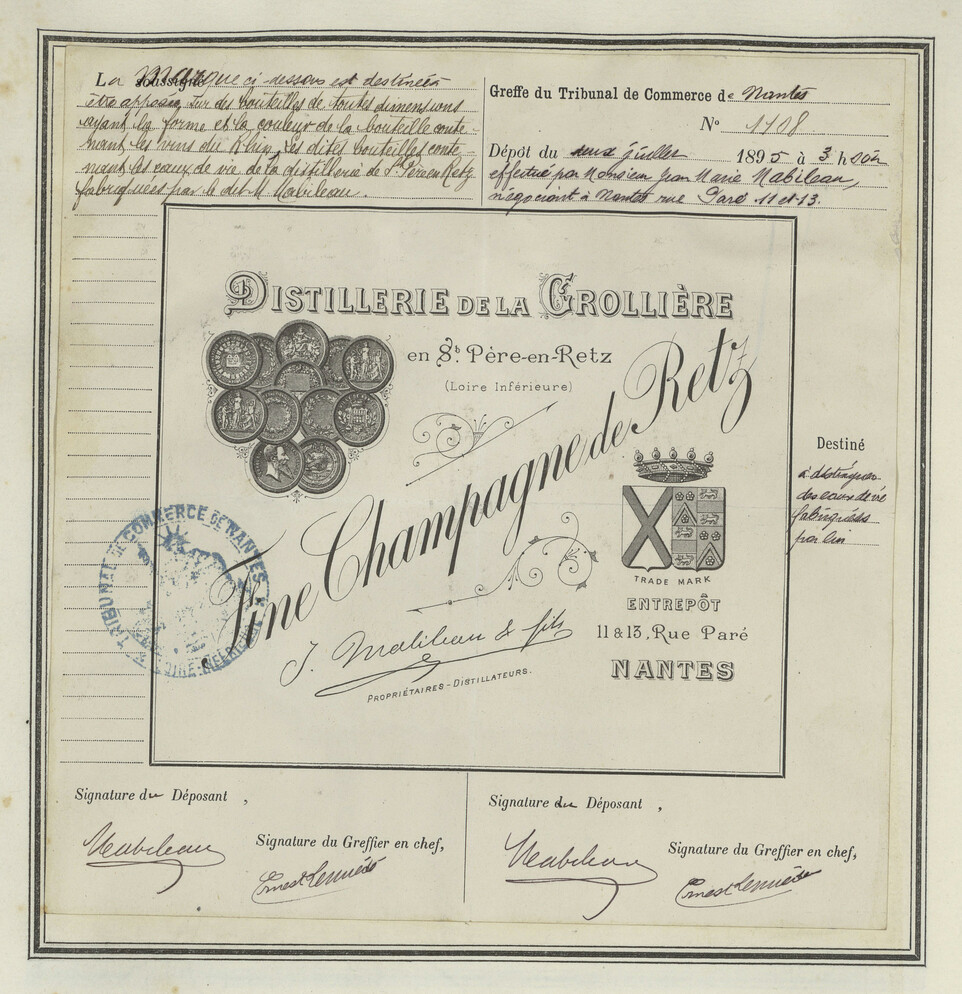 La marque ci-dessous est destinée
être apposée sur des bouteilles de toutes dimensions
ayant la forme et la couleur de la bouteille conte-
nant les vins du Rhin, les dites bouteilles conte-
nant les eaux de vie de la distillerie de St Père en Retz
fabriquées par le dit M. Nabileau.
Greffe du Tribunal de Commerce de Nantes
N° 1708
Dépôt du deux juillet 1895 à 3 h soir
effectué par Monsieur Jean Marie Nabileau,
négociant à Nantes rue Paré 11 et 13.
DISTILLERIE DE LA GROLLIÈRE
en St. Père-en-Retz
(Loire Inférieure)
Fine Champagne de Retz
TRADE MARK
ENTREPÔT
11 & 13, Rue Paré
NANTES
J. Nabileau & fils
PROPRIÉTAIRES-DISTILLATEURS.
TRIBUNAL DE COMMERCE DE NANTES
Destiné
à distinguer
des eaux de vie
fabriquées
par lui
Signature du Déposant,
Nabileau
Signature du Greffier en chef,
Signature du Déposant,
Nabileau
Signature du Greffier en chef,